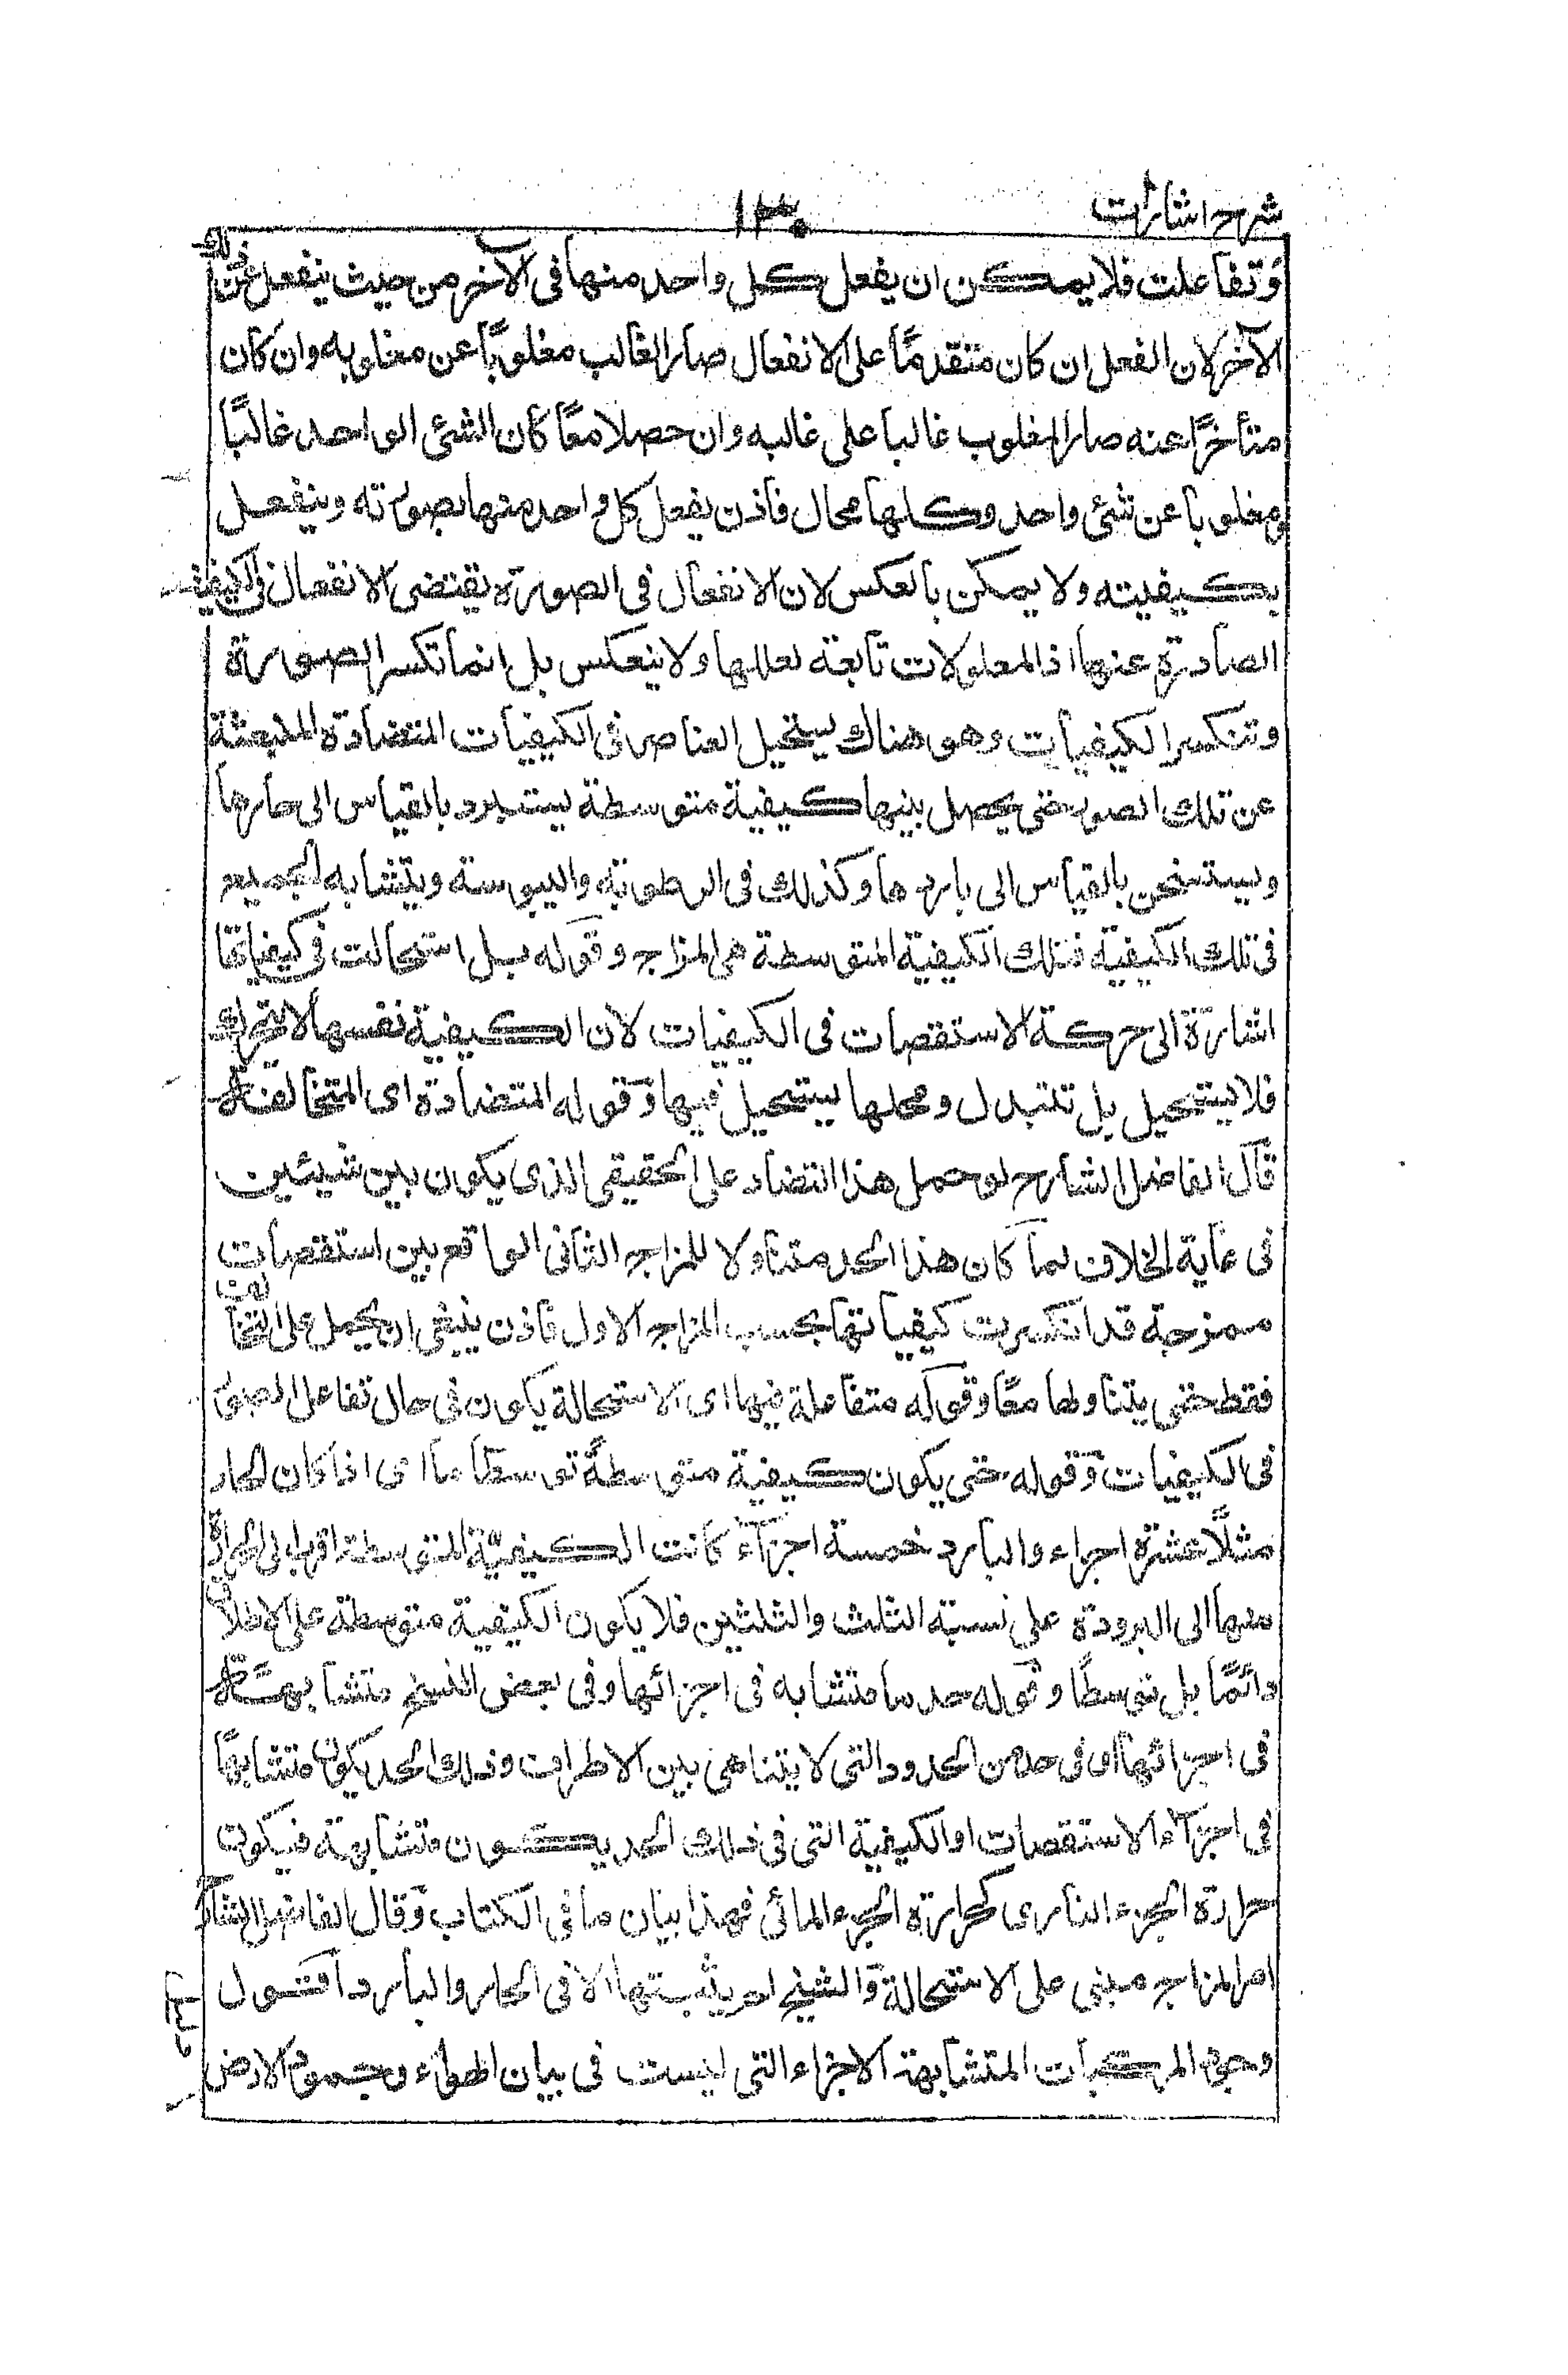 شرح اشارات ١٣٠
وتفاعلت فلا يمكن ان يفعل كل واحد منها فى الآخر من حيث ينفعل عن ذلك
الآخر لان الفعل ان كان متقدمًا على الانفعال صار الغالب مغلوبًا عن مغلوبه وان كان
متأخرًا عنه صار المغلوب غالبا على غالبه وان حصلا معًا كان الشئ الواحد غالبًا
ومغلوبا عن شئ واحد وكلها محال فاذن يفعل كل واحد منها بصورته وينفعل
بكيفيته ولا يمكن بالعكس لان الانفعال فى الصورة يقتضى الانفعال فى الكيفية
الصادرة عنها اذ المعلولات تابعة لعللها ولا ينعكس بل انما تكسر الصورة
وتنكسر الكيفيات وهو هناك يستحيل العناصر فى الكيفيات المتضادة المنبعثة
عن تلك الصور حتى يحصل بينها كيفية متوسطة يستبرد بالقياس الى حارها
ويستسخن بالقياس الى باردها وكذلك فى الرطوبة واليبوسة ويتشابه الجميع
فى تلك الكيفية فتلك الكيفية المتوسطة هى المزاج وقوله بل استحالت فى كيفياتها
اشارة الى حركة الاستقصات فى الكيفيات لان الكيفية نفسها لا تتحرك
فلا يستحيل بل تتبدل ومحلها يستحيل فيها وقوله المتضادة اى المتخالفة
قال الفاضل الشارح لو حمل هذا التضاد على الحقيقى الذى يكون بين شيئين
فى غاية الخلاف لما كان هذا الحد متناولا للمزاج الثانى الواقع بين استقصات
ممزجة قد انكسرت كيفياتها بحسب المزاج الاول فاذن ينبغى ان يحمل على التخالف
فقط حتى يتناولهما معًا وقوله متفاعلة فيها اى الاستحالة يكون فى حال تفاعل الصور
فى الكيفيات وقوله حتى يكون كيفية متوسطة توسطًا ما اى اذا كان الحار
مثلًا عشرة اجزاء والبارد خمسة اجزاء كانت الكيفية المتوسطة اقرب الى الحرارة
منها الى البرودة على نسبة الثلث والثلثين فلا يكون الكيفية متوسطة على الاطلاق
دائمًا بل توسطًا وقوله حد ما متشابه فى اجزائها وفى بعض النسخ متشابهة
فى اجزائها اى فى حد من الحدود التى لا يتناهى بين الاطراف وذلك الحد يكون متشابهًا
فى اجزاء الاستقصات او الكيفية التى فى ذلك الحد يكون متشابهة فيكون
حرارة الجزء النارى كحرارة الجزء المائى فهذا بيان ما فى الكتاب وقال الفاضل الشارح
امر المزاج مبنى على الاستحالة والشيخ لم يثبتها الا فى الحار والبارد اقول
وجود المركبات المتشابهة الاجزاء التى ليست فى بيان الهواء وجمود الارض